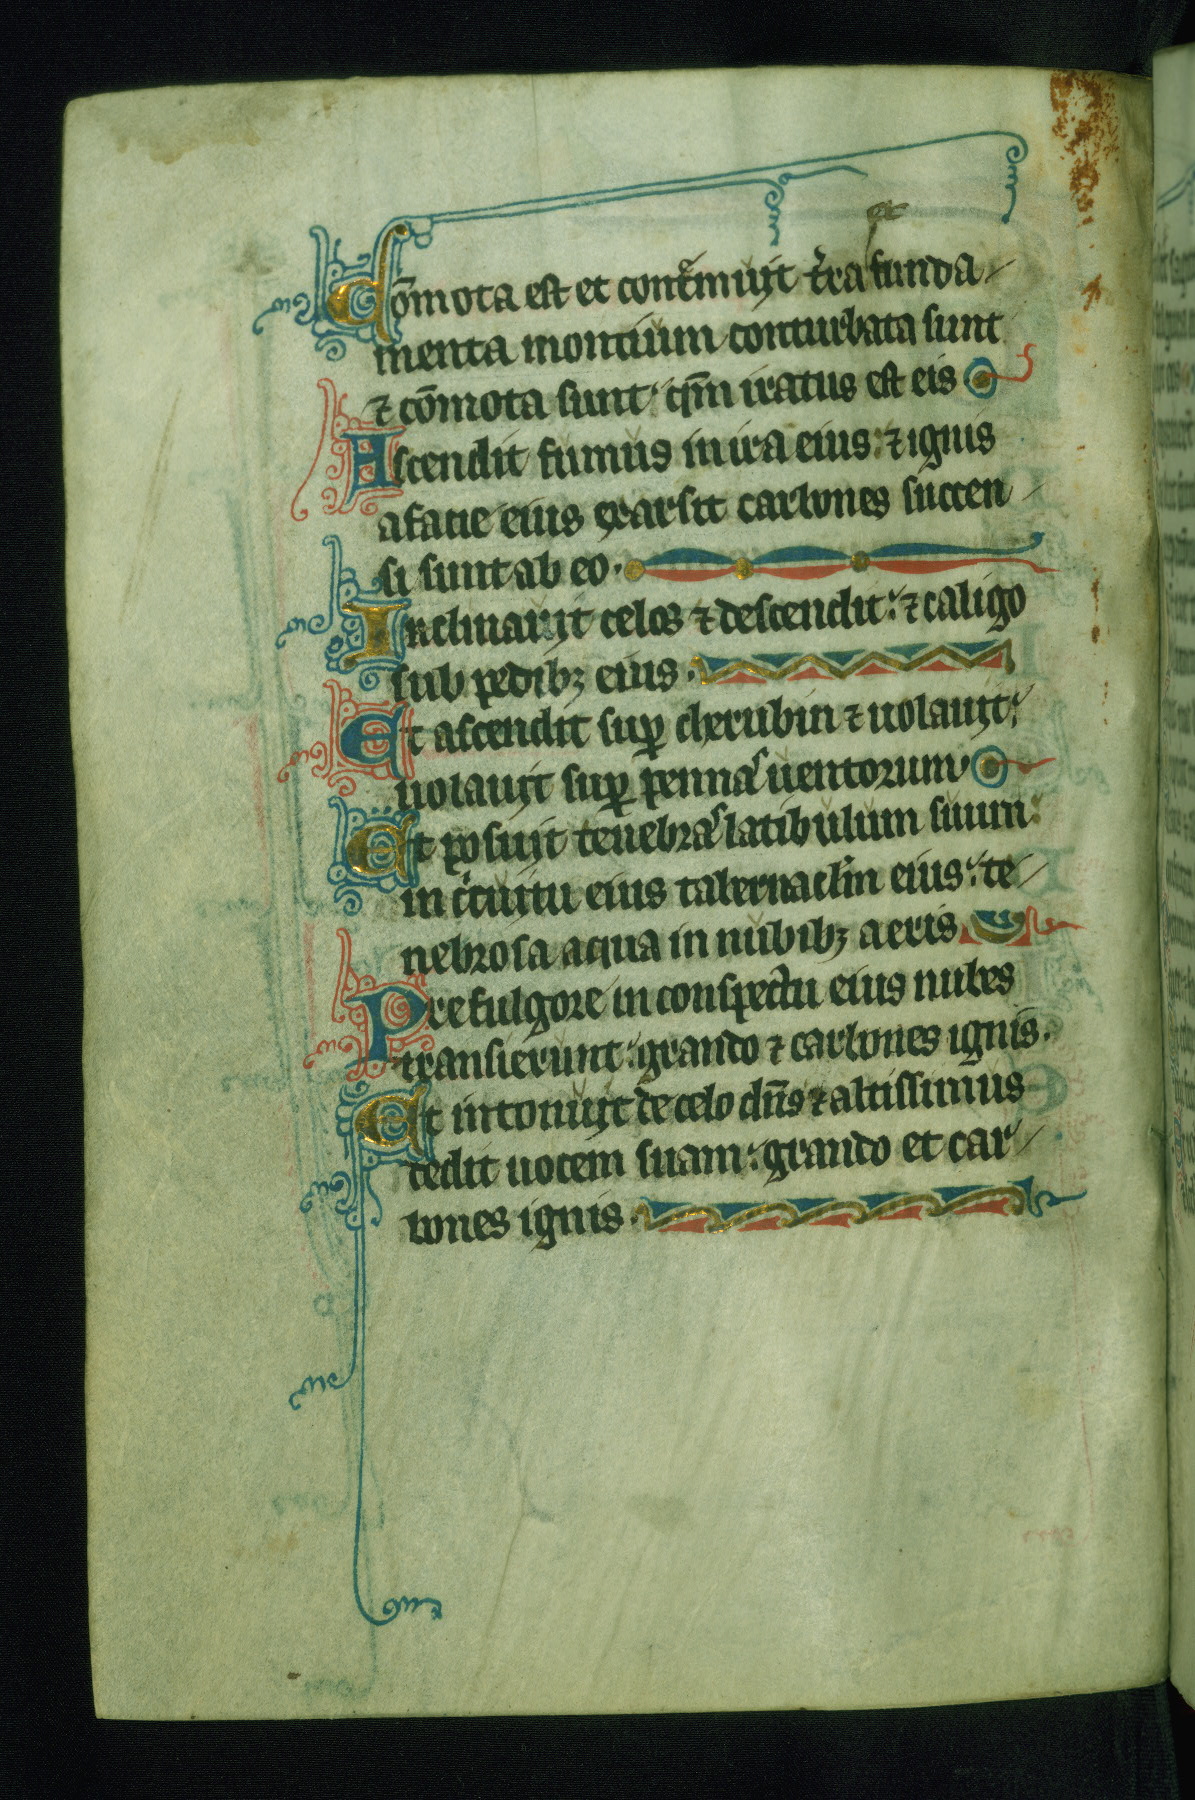 et
Cōmota est et contͥmuit tͥra funda
menta montium conturbata sunt
⁊ cōmota sunt: qm̄ iratus est eis
Ascendit fumus in ira eius: ⁊ ignis
a facie eius exarsit carbones succen
si sunt ab eo.
Inclinauit celos ⁊ descendit: ⁊ caligo
sub pedibꝫ eius.
Et ascendit suꝑ cherubin ⁊ uolauit:
uolauit suꝑ pennas uentorum
Et posuit tenebras latibulum suum:
in cͥcuitu eius tabernacl̄m eius: te
nebrosa aqua in nubibꝫ aeris
Pre fulgore in conspectu eius nubes
transierunt: grando ⁊ carbones ignis.
Et intonuit de celo dn̄s ⁊ altissimus
dedit uocem suam: grando et car
bones ignis.